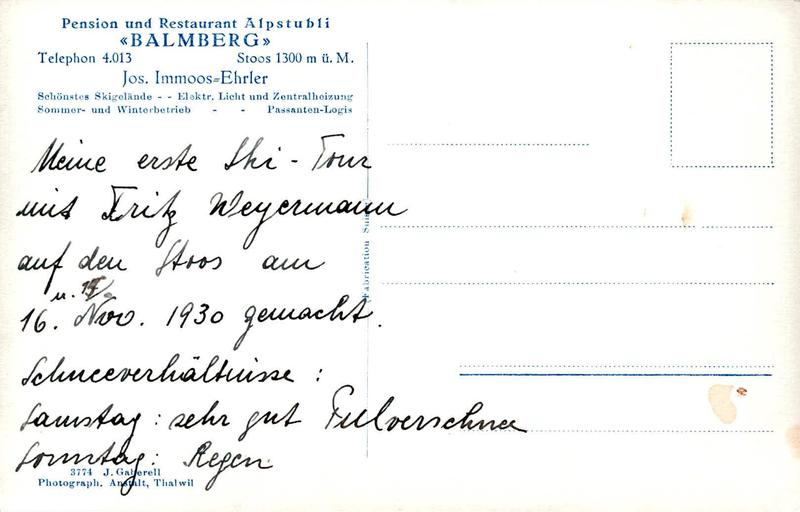 Pension und Restaurant Alpstubli
«BALMBERG»
Telephon 4.013 Stoos 1300 m ü. M.
Jos. Immoos=Ehrler
Schönstes Skigelände - - Elektr. Licht und Zentralheizung
Sommer- und Winterbetrieb - - Passanten-Logis
Meine erste Ski-Tour
mit Fritz Weyermann
auf den Stoos am
16. u. Nov. 1930 gemacht.
Schneeverhältnisse:
Samstag: sehr gut Pulverschnee
Sonntag: Regen
3774 J. Gaberell
Photograph. Anstalt, Thalwil
Fabrication